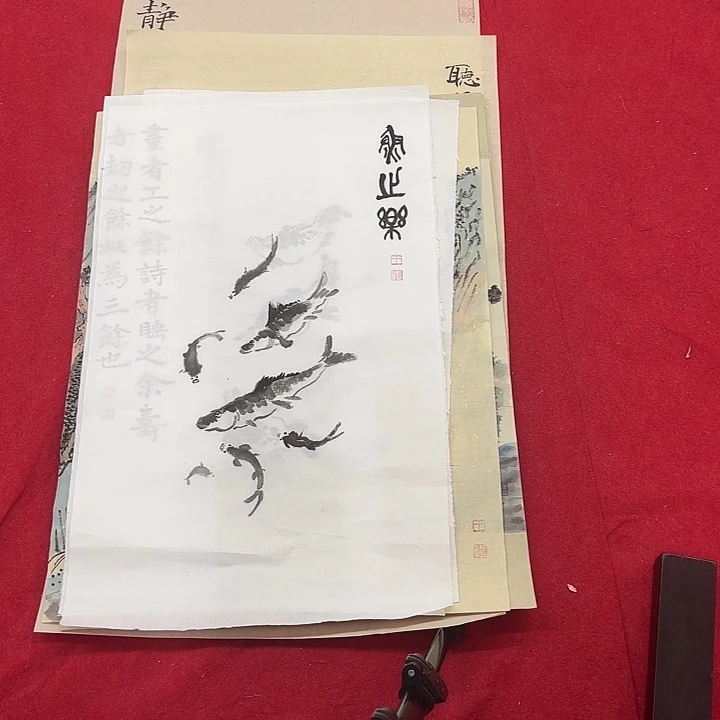 靜
聽
魚之樂
畫者工之餘詩者睡之余壽
者劫之餘此為三餘也